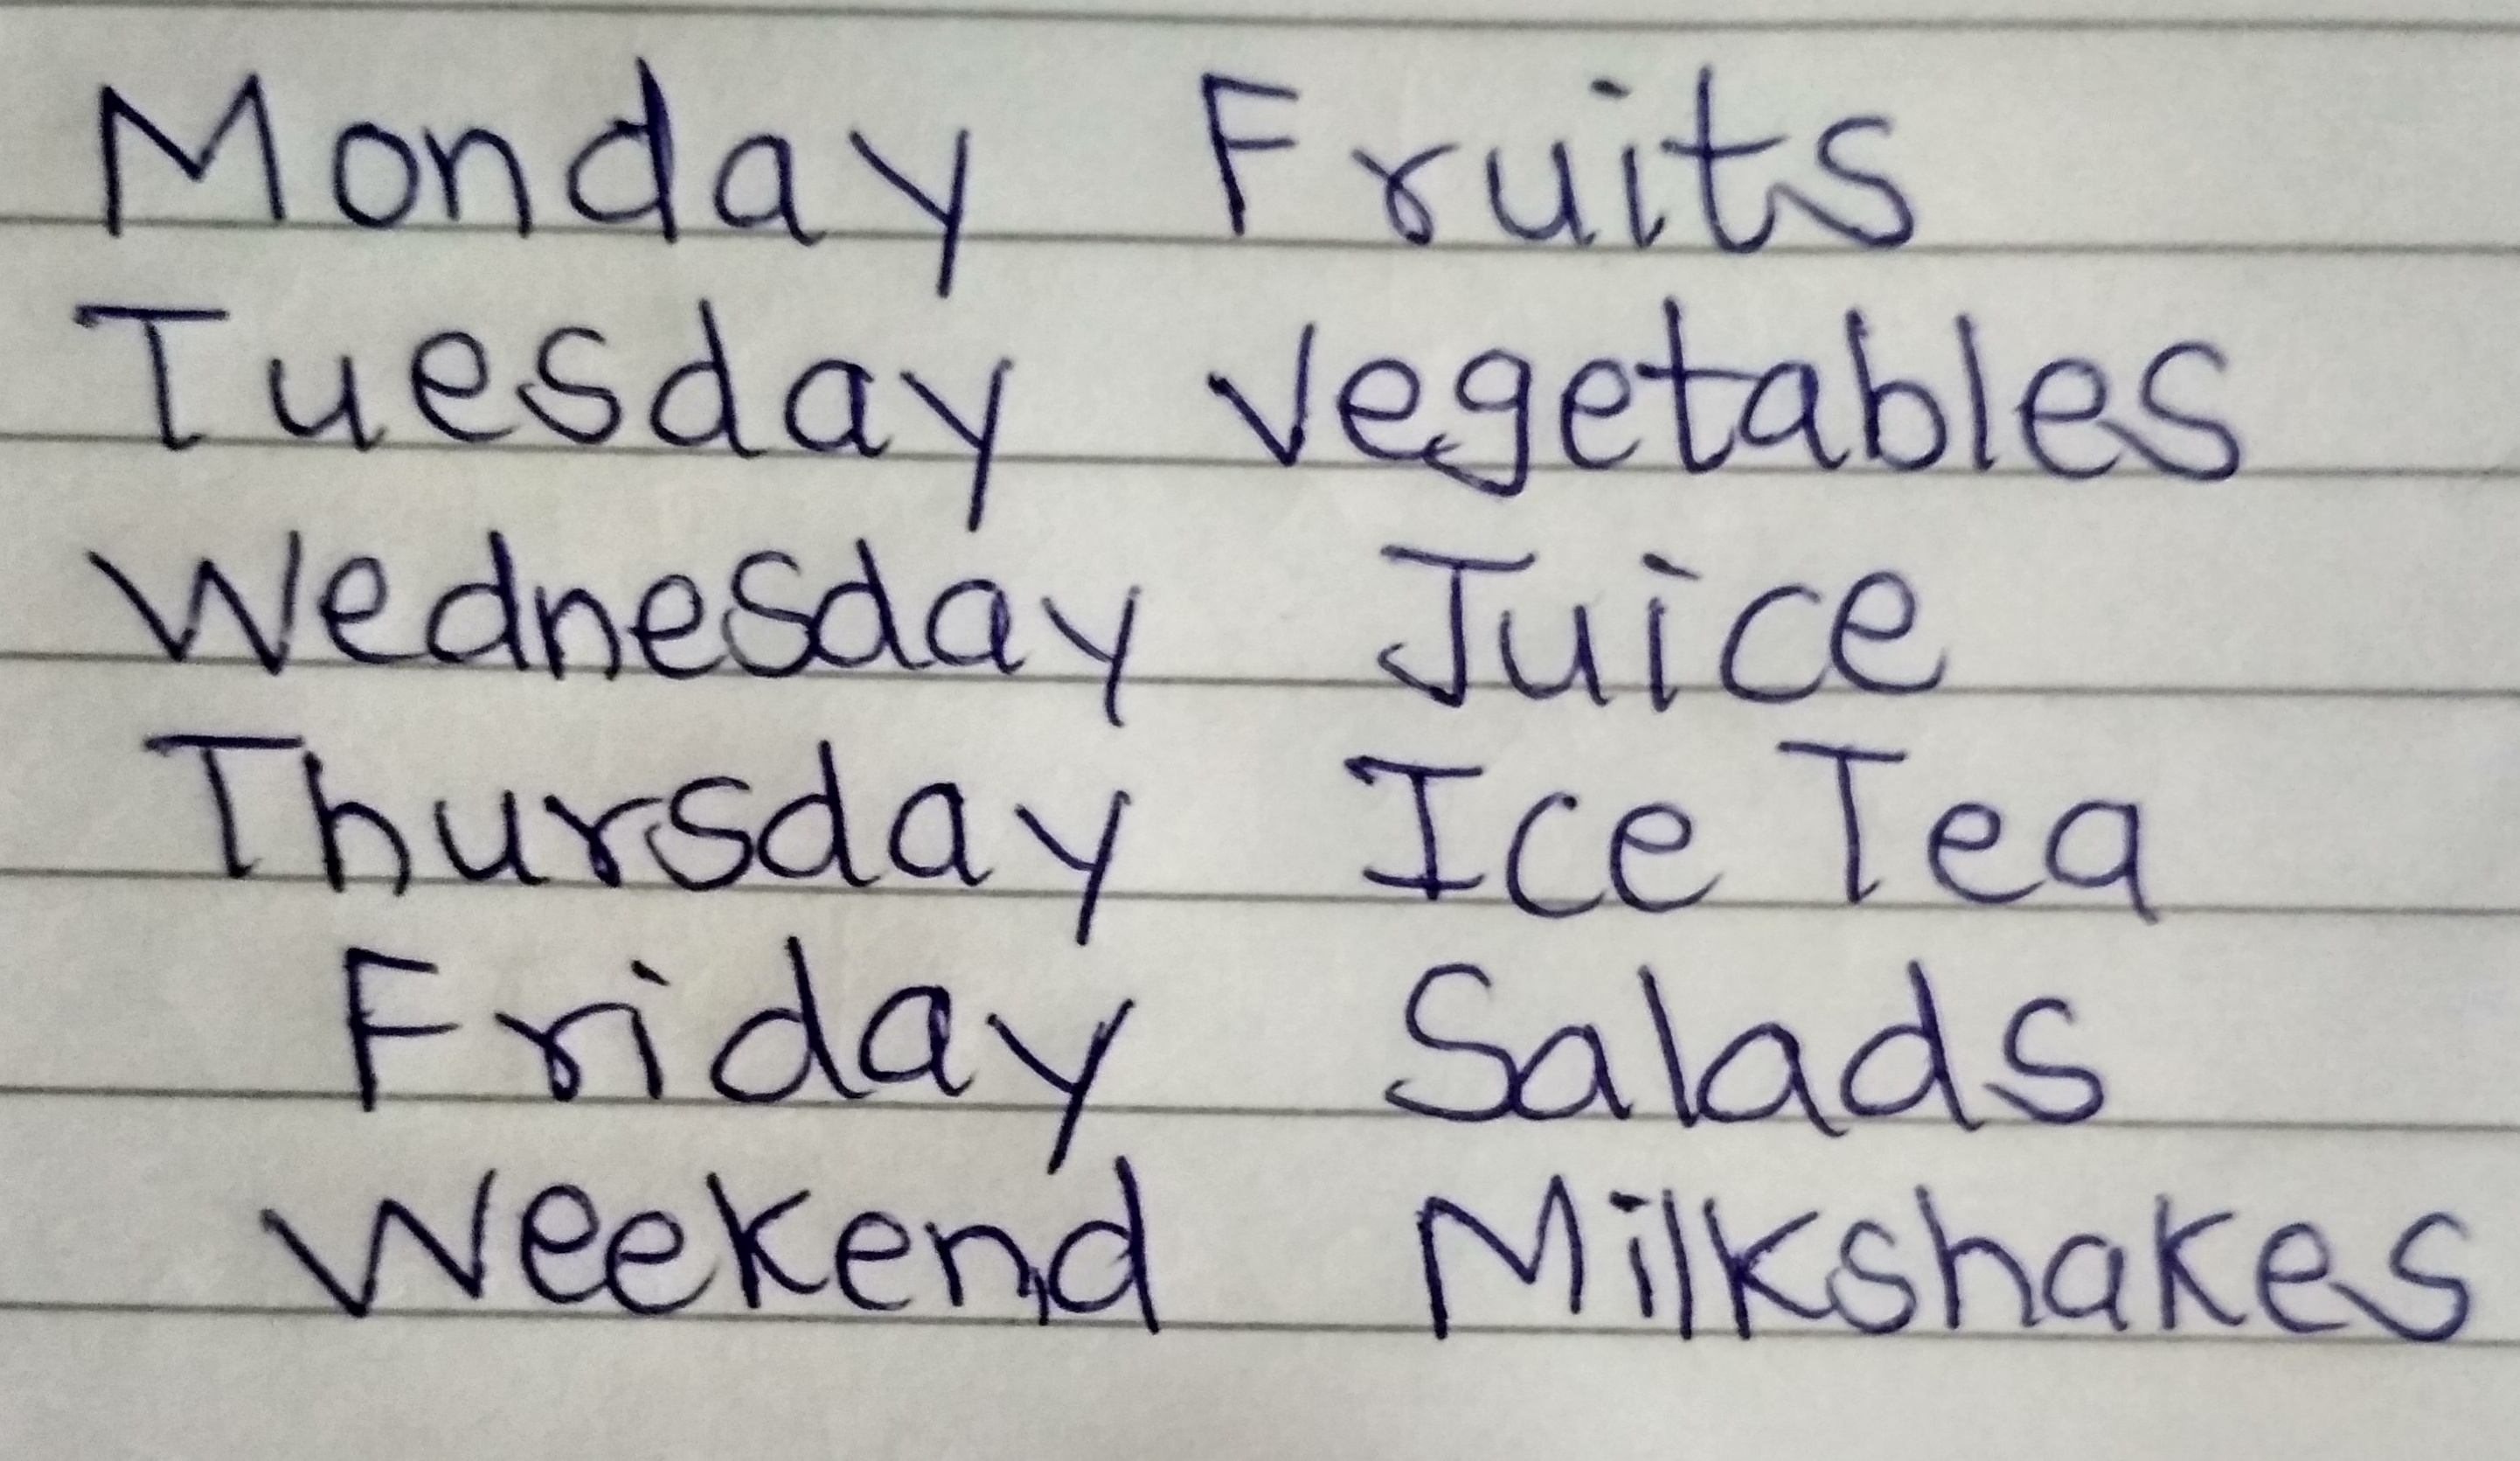 Monday Fruits
Tuesday vegetables
Wednesday Juice
Thursday Ice Tea
Friday Salads
Weekend Milkshakes